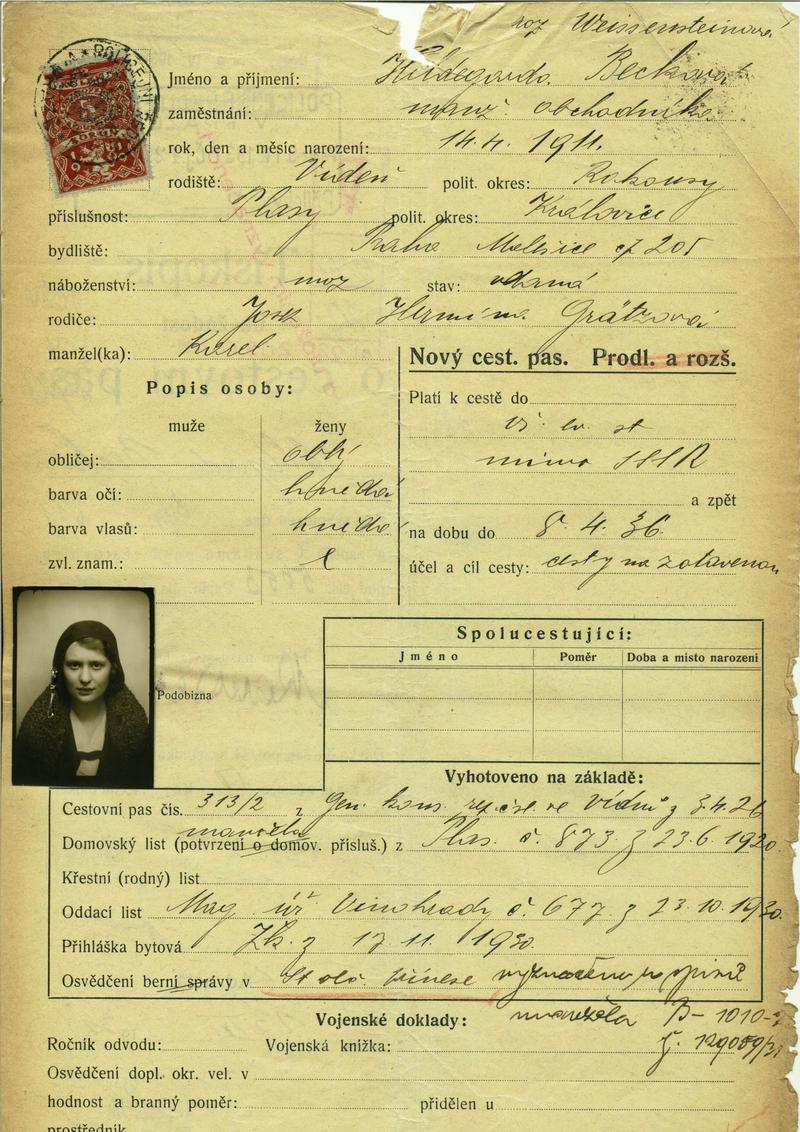 roz Weissensteinová
Jméno a příjmení: Hildegarda Becková
zaměstnání: manž. obchodníka
rok, den a měsíc narození: 14.4. 1911.
rodiště: Vídeň polit. okres: Rakousy
příslušnost: Plasy polit. okres: Kralovice
bydliště: Praha Malešice čp 205
náboženství: moz stav: vdaná
rodiče: Josef Hermína Grätzová
manžel(ka): Karel
Nový cest. pas. Prodl. a rozš.
Popis osoby:
Platí k cestě do
muže ženy
vš. ev. st
obličej: obl.
mimo SSSR
barva očí: hnědá
a zpět
barva vlasů: hnědé
na dobu do 8. 4. 36.
zvl. znam.:
účel a cíl cesty: cesty na zotavenou
Spolucestující:
Jméno Poměr Doba a místo narození
Podobizna
Vyhotoveno na základě:
Cestovní pas čís. 313/2 z Gen. kons. rep. čsl. ve Vídni z 3.4.26
manžela
Domovský list (potvrzení o domov. přísluš.) z Plas. č. 873. z 23.6. 1920.
Křestní (rodný) list
Oddací list Mag. úř. Vinohrady č. 677. z 23.10.1930.
Přihláška bytová z 17. 11. 1930.
Osvědčení berní správy v
manžela B- 1010-
Vojenské doklady:
Ročník odvodu: Vojenská knížka:
Osvědčení dopl. okr. vel. v
hodnost a branný poměr: přidělen u
prostředník